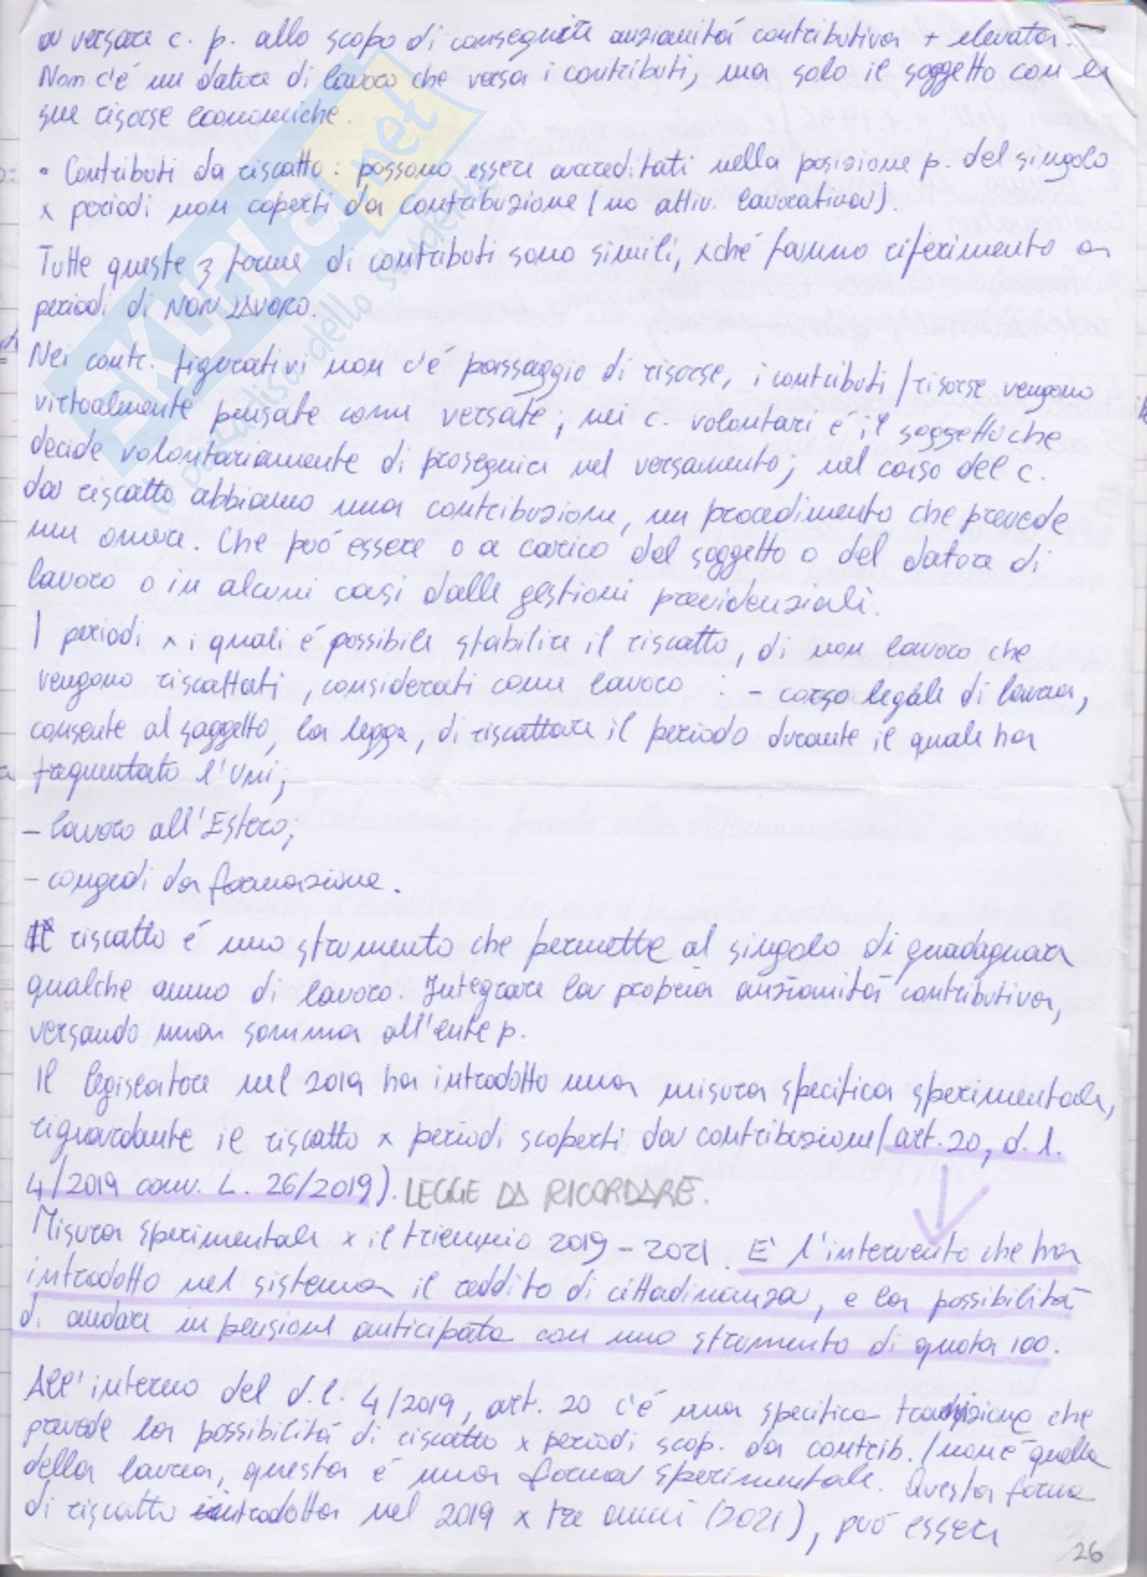 a versare c. p. allo scopo di conseguire anzianitá contributiva + elevata.
Non c'é un datore di lavoro che versa i contributi, ma solo il soggetto con le
sue risorse economiche.
• Contributi da riscatto: possono essere accreditati nella posizione p. del singolo
x periodi non coperti da contribuzione (no attiv. lavorativa).
Tutte queste 3 forme di contributi sono simili, xché fanno riferimento a
periodi di NON LAVORO.
Nei contr. figurativi non c'é passaggio di risorse, i contributi/risorse vengono
virtualmente pensate come versate; nei c. volontari é il soggetto che
decide volontariamente di proseguire nel versamento; nel corso del c.
da riscatto abbiamo una contribuzione, un procedimento che prevede
un onere. Che puó essere o a carico del soggetto o del datore di
lavoro o in alcuni casi dalle gestioni previdenziali.
I periodi x i quali é possibile stabilire il riscatto, di non lavoro che
vengono riscattati, considerati come lavoro : - corso legale di laurea,
consente al soggetto, la legge, di riscattare il periodo durante il quale ha
frequentato l'Uni;
- lavoro all'Estero;
- congedi da formazione.
Il riscatto é uno strumento che permette al singolo di guadagnare
qualche anno di lavoro. Integrare la propria anzianitá contributiva,
versando una somma all'ente p.
Il legislatore nel 2019 ha introdotto una misura specifica sperimentale,
riguardante il riscatto x periodi scoperti da contribuzione (art. 20, d.l.
4/2019 conv. L. 26/2019). LEGGE DA RICORDARE.
Misura sperimentale x il triennio 2019 - 2021. E' l'intervento che ha
introdotto nel sistema il reddito di cittadinanza, e la possibilitá
di andare in pensione anticipata con uno strumento di quota 100.
All'interno del d.l. 4/2019, art. 20 c'é una specifica che
prevede la possibilitá di riscatto x periodi scop. da contrib. (non é quella
della laurea, questa é una forma sperimentale. Questa forma
di riscatto introdotta nel 2019 x tre anni (2021), puó essere
26
SKUOLA.net